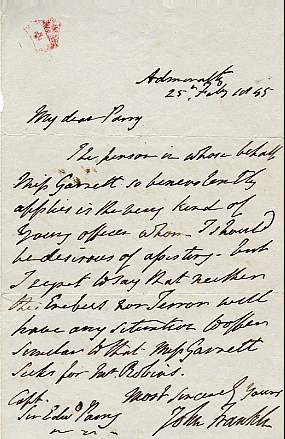 Admiralty
25th Feby 1845
My dear Parry
The person in whose behalf
Miss Garnett so benevolently
applies is the very kind of
Young officer whom I should
be desirous of assisting - but
I regret to say that neither
the Erebus nor Terror will
have any situation to offer
similar to that Miss Garnett
seeks for Mr. Robins.
Most Sincerely Yours
John Franklin
Capt.
Sir Edwd Parry